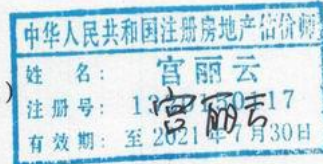 中华人民共和国注册房地产估价师
)
姓 名: 宫丽云
注册号:
有效期: 至 2021 年 7月30日